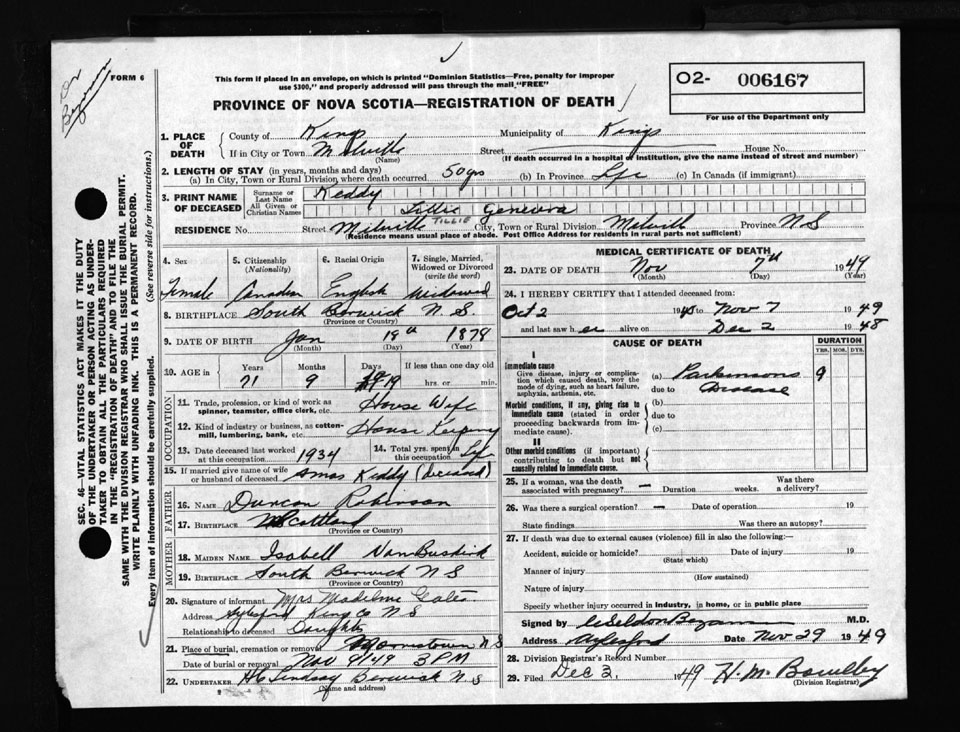 Dr
Bezanson
FORM 6
This form if placed in an envelope, on which is printed "Dominion Statistics—Free, penalty for improper
use $300," and properly addressed will pass through the mail "FREE"
PROVINCE OF NOVA SCOTIA—REGISTRATION OF DEATH
O2- 006167
For use of the Department only
1. PLACE OF DEATH County of Kings Municipality of Kings
If in City or Town Melville Street House No.
(Name) (If death occurred in a hospital or institution, give the name instead of street and number)
2. LENGTH OF STAY (in years, months and days)
(a) In City, Town or Rural Division, where death occurred 50 yrs (b) In Province Life (c) In Canada (if immigrant)
3. PRINT NAME OF DECEASED Surname or Last Name Keddy
All Given or Christian Names Lillie Genevra
TILLIE
RESIDENCE No. Street Melville City, Town or Rural Division Melville Province N S
(Residence means usual place of abode. Post Office Address for residents in rural parts not sufficient)
4. Sex 5. Citizenship (Nationality) 6. Racial Origin 7. Single, Married, Widowed or Divorced (write the word)
Female Canadian English widowed
8. BIRTHPLACE South Berwick N. S.
(Province or Country)
9. DATE OF BIRTH Jan 18th 1878
(Month) (Day) (Year)
10. AGE in Years Months Days If less than one day old
71 9 19 hrs. or min.
OCCUPATION
11. Trade, profession, or kind of work as spinner, teamster, office clerk, etc. House Wife
12. Kind of industry or business, as cotton-mill, lumbering, bank, etc. House Keeping
13. Date deceased last worked at this occupation 1934 14. Total yrs. spent in this occupation Life
15. If married give name of wife or husband of deceased Amos Keddy (Deceased)
FATHER
16. Name Duncan Robinson
17. Birthplace Scottland
(Province or Country)
MOTHER
18. Maiden Name Isabell VanBuskirk
19. Birthplace South Berwick N S
(Province or Country)
20. Signature of informant Mrs Madeline Gates
Address Aylesford Kings Co N S
Relationship to deceased Daughter
21. Place of burial, cremation or removal Morristown N S
Date of burial or removal Nov 9/49 3 PM
22. UNDERTAKER H C Lindsay Berwick N S
(Name and address)
MEDICAL CERTIFICATE OF DEATH
23. DATE OF DEATH Nov 7th 1949
(Month) (Day) (Year)
24. I HEREBY CERTIFY that I attended deceased from
Oct 2 194 to Nov 7 1949
and last saw her alive on Dec 2 1948
CAUSE OF DEATH DURATION
YRS. MOS. DYS.
I
Immediate cause
Give disease, injury or complication which caused death, not the mode of dying, such as heart failure, asphyxia, asthenia, etc.
(a) Parkinsons 9
due to Disease
Morbid conditions, if any, giving rise to immediate cause (stated in order proceeding backwards from immediate cause).
(b)
due to
(c)
II
Other morbid conditions (if important) contributing to death but not causally related to immediate cause.
25. If a woman, was the death associated with pregnancy? – Duration weeks. Was there a delivery?
26. Was there a surgical operation? – Date of operation 19
State findings Was there an autopsy?
27. If death was due to external causes (violence) fill in also the following:—
Accident, suicide or homicide? Date of injury 19
(State which)
Manner of injury
(How sustained)
Nature of injury
Specify whether injury occurred in industry, in home, or in public place
Signed by Weldon Bezanson M.D.
Address Aylesford Date Nov 29 1949
28. Division Registrar's Record Number
29. Filed Dec 2, 1949 H. M. Bowlby
(Division Registrar)
SEC. 46—VITAL STATISTICS ACT MAKES IT THE DUTY
OF THE UNDERTAKER OR PERSON ACTING AS UNDER-
TAKER TO OBTAIN ALL THE PARTICULARS REQUIRED
IN THE "REGISTRATION OF DEATH" AND TO FILE THE
SAME WITH THE DIVISION REGISTRAR WHO SHALL ISSUE THE BURIAL PERMIT.
WRITE PLAINLY WITH UNFADING INK. THIS IS A PERMANENT RECORD.
Every item of information should be carefully supplied. (See reverse side for instructions.)